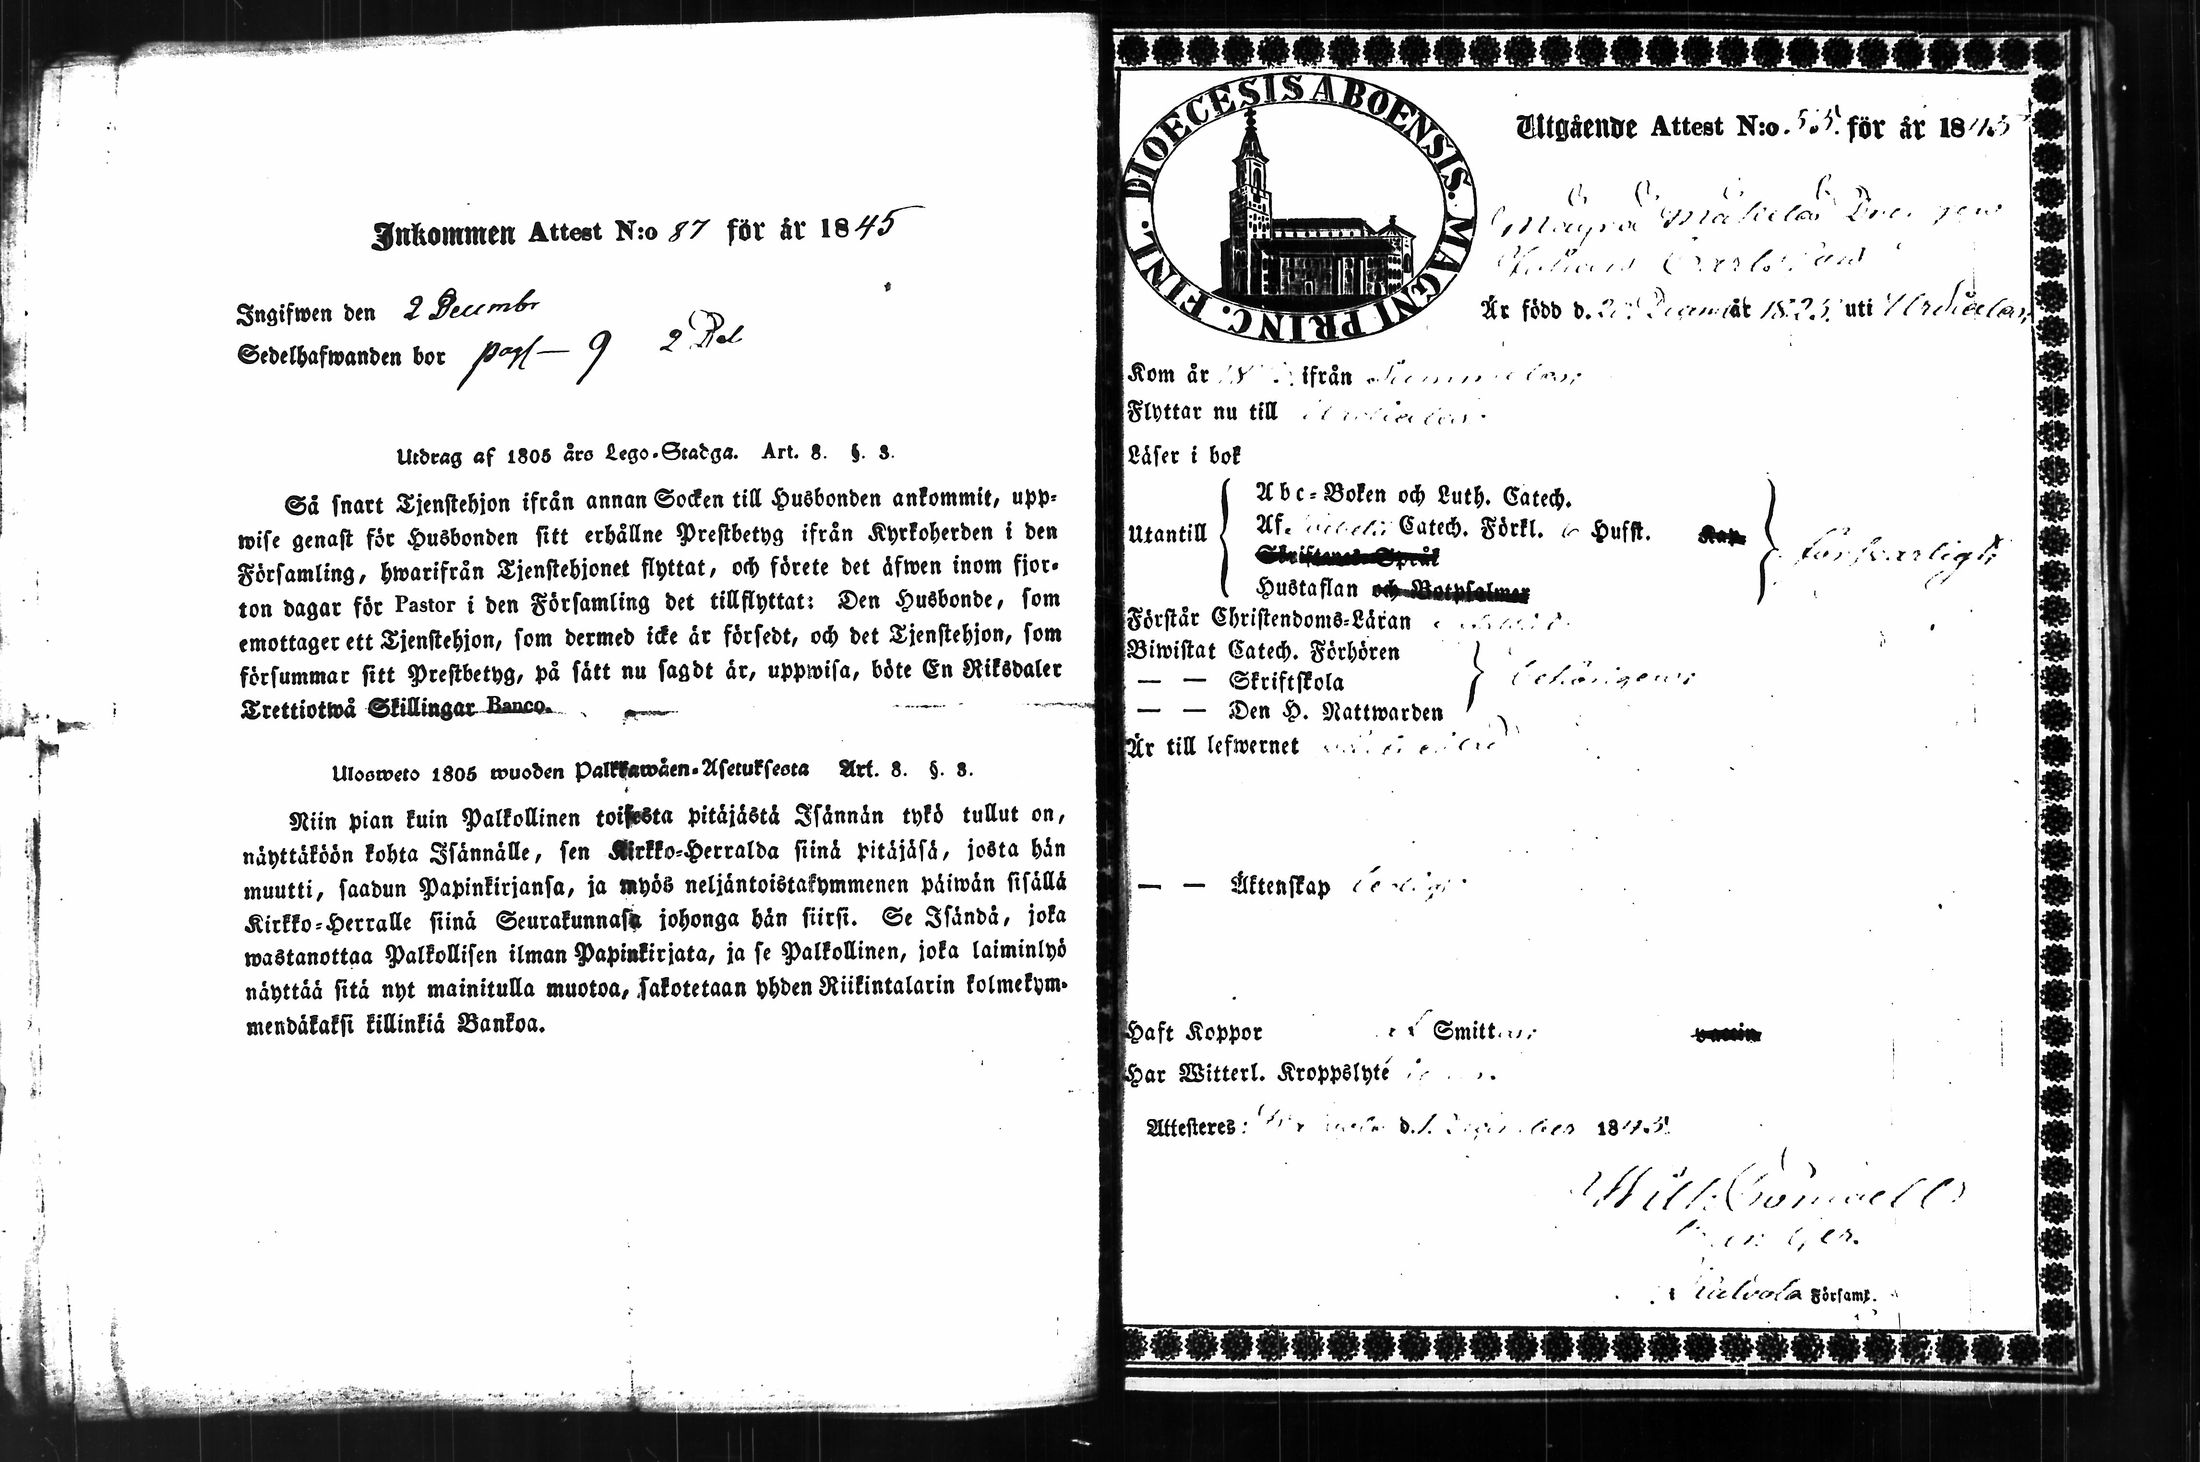 Inkommen Attest N:o 87 för år 1845
Ingifwen den 2 Decembr
Sedelhafwanden bor pag 9 2 Del
Utdrag af 1805 års Lego-Stadga. Art. 8. §. 3.
Så snart Tjenstehjon ifrån annan Socken till Husbonden ankommit, upp-
wise genast för Husbonden sitt erhållne Prestbetyg ifrån Kyrkoherden i den
Församling, hwarifrån Tjenstehjonet flyttat, och förete det äfwen inom fjor-
ton dagar för Pastor i den Församling det tillflyttat: Den Husbonde, som
emottager ett Tjenstehjon, som dermed icke är försedt, och det Tjenstehjon, som
försummar sitt Prestbetyg, på sätt nu sagdt är, uppwisa, böte En Riksdaler
Trettiotwå Skillingar Banco.
Ulosweto 1805 wuoden Palkkawäen-Asetuksesta Art. 8. §. 3.
Niin pian kuin Palkollinen toisesta pitäjästä Isännän tykö tullut on,
näyttäköön kohta Isännälle, sen Kirkko-Herralda siinä pitäjäsä, josta hän
muutti, saadun Papinkirjansa, ja myös neljäntoistakymmenen päiwän sisällä
Kirkko-Herralle siinä Seurakunnasa johonga hän siirsi. Se Isändä, joka
wastanottaa Palkollisen ilman Papinkirjata, ja se Palkollinen, joka laiminlyö
näyttää sitä nyt mainitulla muotoa, sakotetaan yhden Riikintalarin kolmekym-
mendäkaksi killinkiä Bankoa.
DIOECESIS ABOENSIS. MAGNI PRINC. FINL.
Utgående Attest N:o 55. för år 1845
Mäkelä Drengen
Johan Carlsson
Är född d. Decem år 1825 uti Urdiala,
Kom år 18 ifrån
Flyttar nu till Urdiala.
Läser i bok
Utantill
Abc-Boken och Luth. Catech.
Af. Catech. Förkl. 6 Hufst. Kap.
Skriftenes Språk
Hustaflan och Botpsalmer
försvarligt;
Förstår Christendoms-Läran
Biwistat Catech. Förhören
— — Skriftskola
— — Den H. Nattwarden
behörigen;
Är till lefwernet
— — Äktenskap ledig.
Haft Koppor Smittan; vaccin
Har Witterl. Kroppslyte
Attesteres: d. 1. December 1845.
Wilh.
Kalvola Församl.